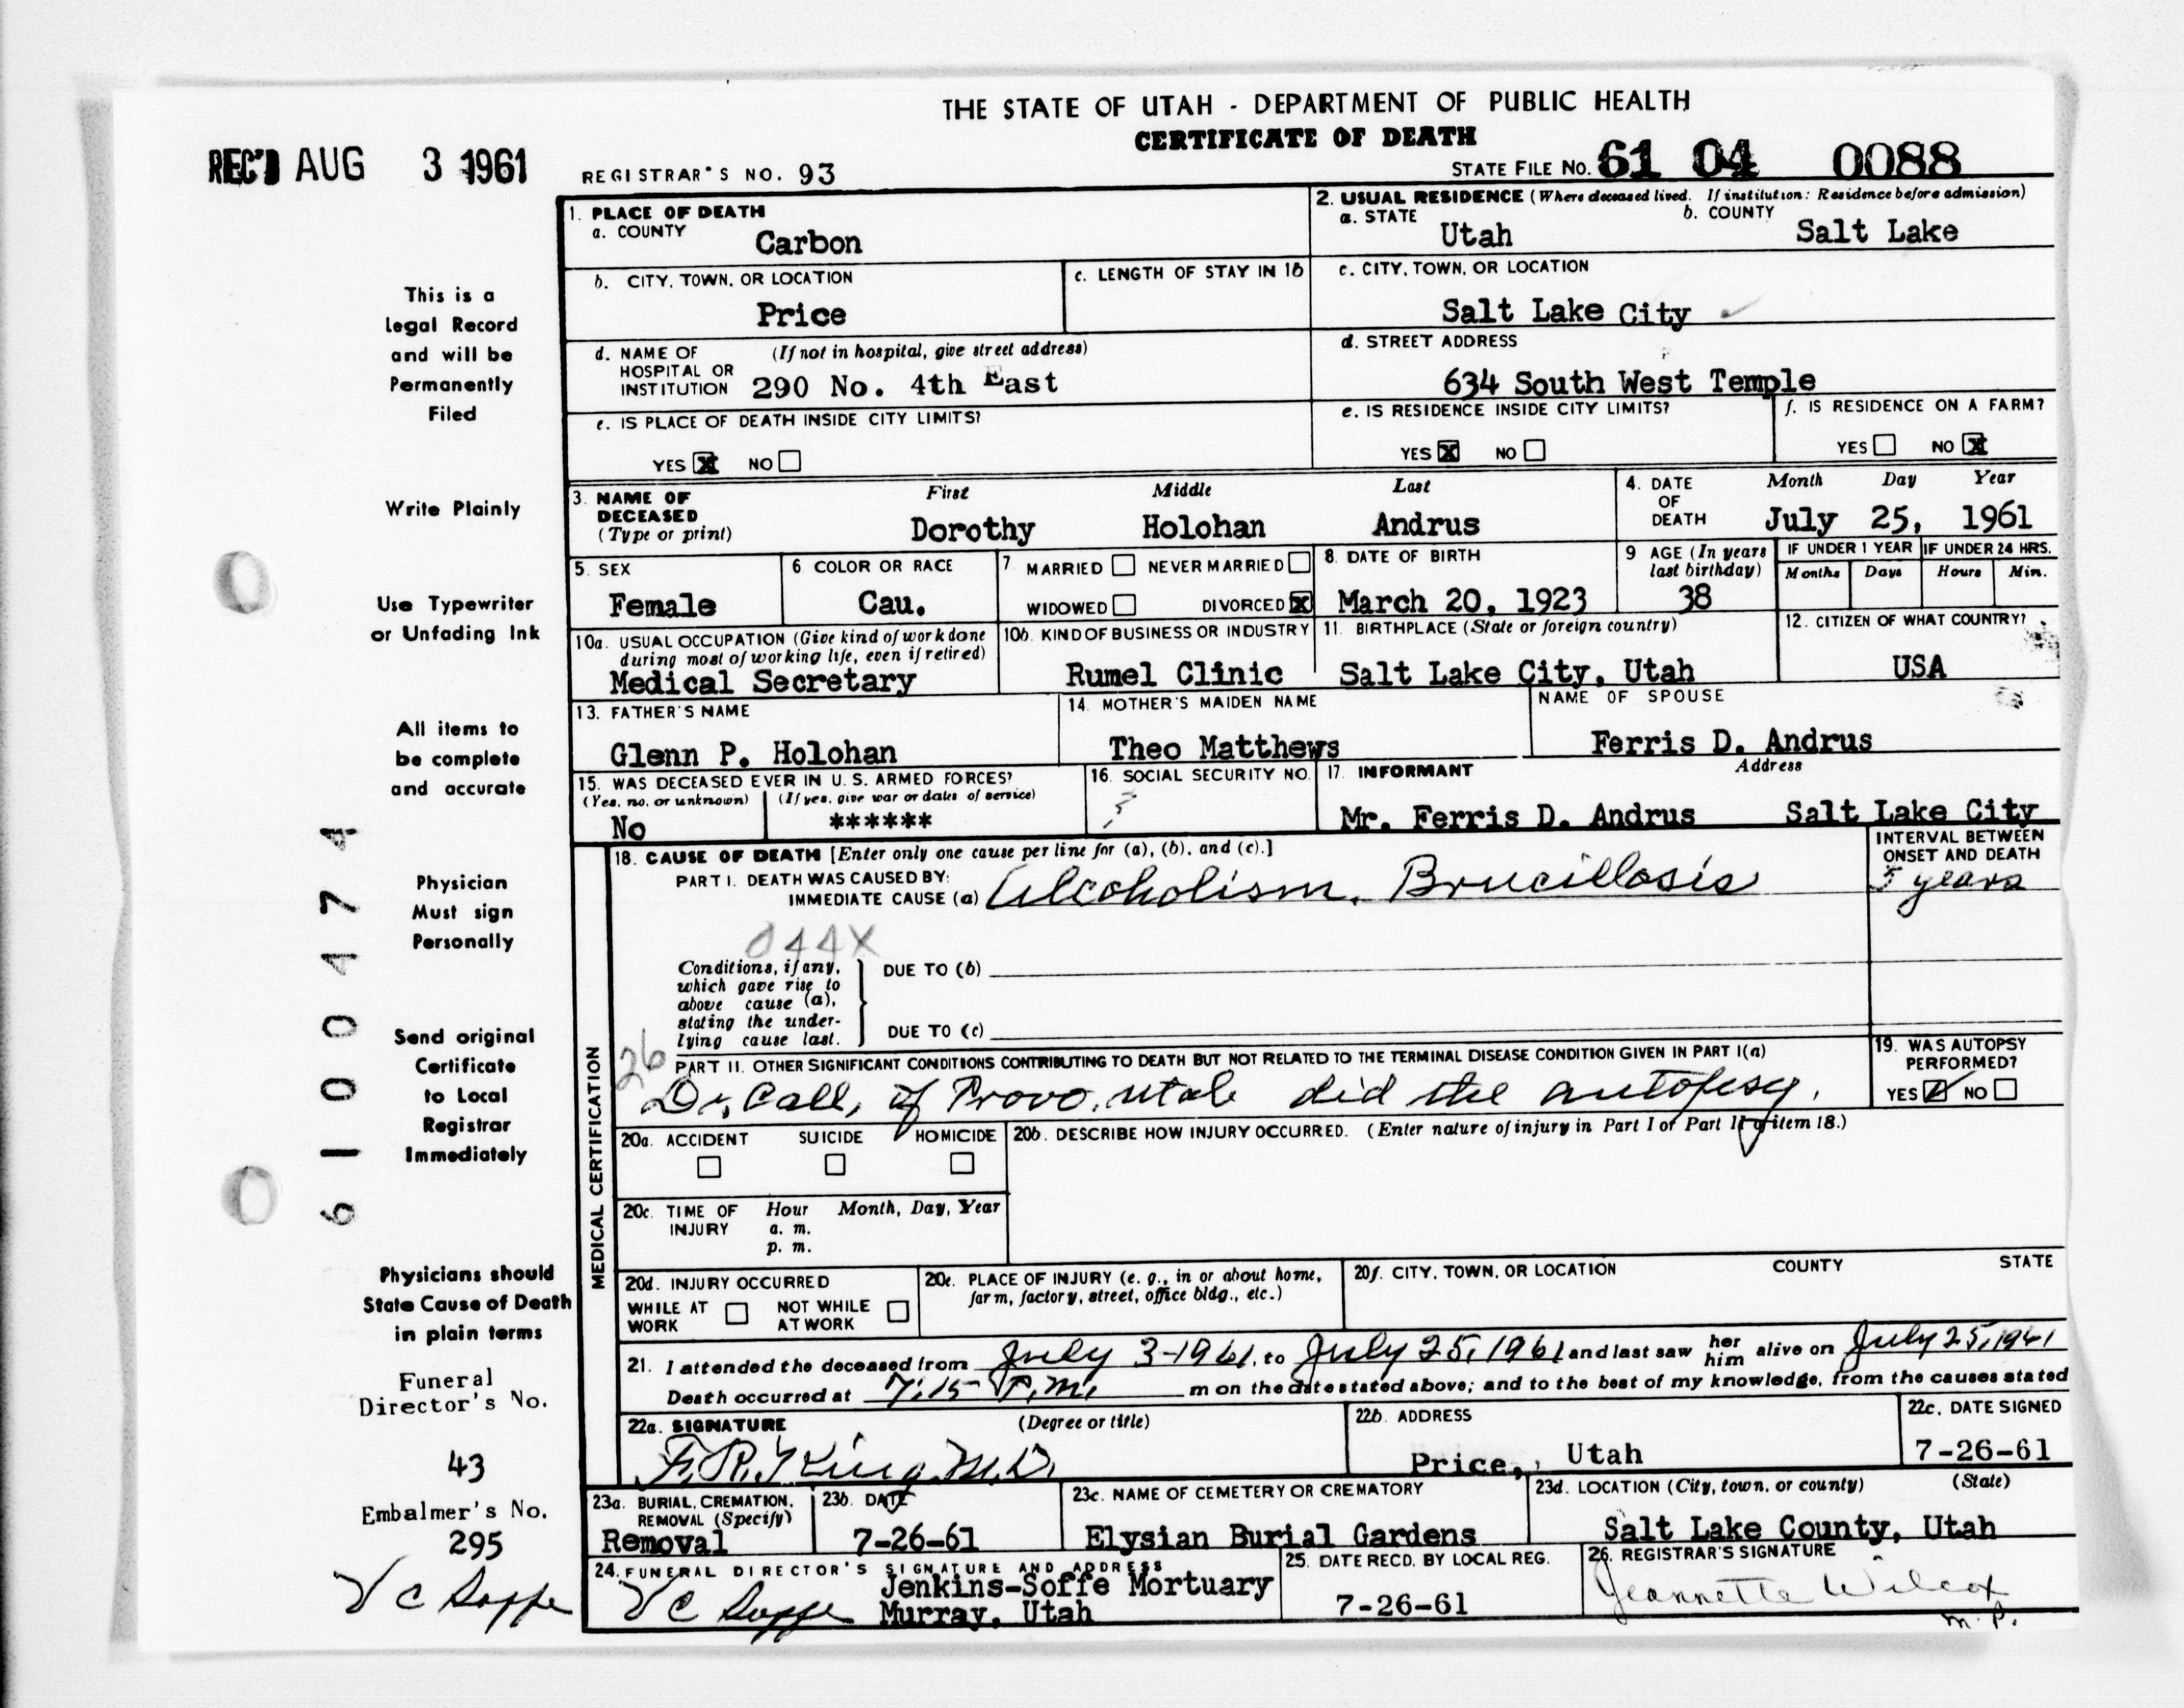 THE STATE OF UTAH - DEPARTMENT OF PUBLIC HEALTH
CERTIFICATE OF DEATH
REC'D AUG 3 1961
REGISTRAR'S NO. 93
STATE FILE NO. 61 04 0088
This is a
Legal Record
and will be
Permanently
Filed
Write Plainly
Use Typewriter
or Unfading Ink
All items to
be complete
and accurate
Physician
Must sign
Personally
Send original
Certificate
to Local
Registrar
Immediately
Physicians should
State Cause of Death
in plain terms
Funeral
Director's No.
43
Embalmer's No.
295
V C Soffe
61004174
1. PLACE OF DEATH
a. COUNTY
Carbon
2. USUAL RESIDENCE (Where deceased lived. If institution: Residence before admission)
a. STATE
Utah
b. COUNTY
Salt Lake
b. CITY, TOWN, OR LOCATION
Price
c. LENGTH OF STAY IN 1b
c. CITY, TOWN, OR LOCATION
Salt Lake City
d. NAME OF HOSPITAL OR INSTITUTION
(If not in hospital, give street address)
290 No. 4th East
d. STREET ADDRESS
634 South West Temple
e. IS PLACE OF DEATH INSIDE CITY LIMITS?
YES X NO
e. IS RESIDENCE INSIDE CITY LIMITS?
YES X NO
f. IS RESIDENCE ON A FARM?
YES NO X
3. NAME OF DECEASED (Type or print)
First Middle Last
Dorothy Holohan Andrus
4. DATE OF DEATH
Month Day Year
July 25, 1961
5. SEX
Female
6. COLOR OR RACE
Cau.
7. MARRIED NEVER MARRIED
WIDOWED DIVORCED X
8. DATE OF BIRTH
March 20, 1923
9 AGE (In years last birthday)
38
IF UNDER 1 YEAR
Months Days
IF UNDER 24 HRS.
Hours Min.
10a. USUAL OCCUPATION (Give kind of work done during most of working life, even if retired)
Medical Secretary
10b. KIND OF BUSINESS OR INDUSTRY
Rumel Clinic
11. BIRTHPLACE (State or foreign country)
Salt Lake City, Utah
12. CITIZEN OF WHAT COUNTRY?
USA
13. FATHER'S NAME
Glenn P. Holohan
14. MOTHER'S MAIDEN NAME
Theo Matthews
NAME OF SPOUSE
Ferris D. Andrus
15. WAS DECEASED EVER IN U.S. ARMED FORCES?
(Yes, no, or unknown) (If yes, give war or dates of service)
No ******
16. SOCIAL SECURITY NO.
?
17. INFORMANT Address
Mr. Ferris D. Andrus Salt Lake City
MEDICAL CERTIFICATION
18. CAUSE OF DEATH [Enter only one cause per line for (a), (b), and (c).]
PART I. DEATH WAS CAUSED BY:
IMMEDIATE CAUSE (a) Alcoholism, Brucillosis
INTERVAL BETWEEN ONSET AND DEATH
5 years
044X
Conditions, if any, which gave rise to above cause (a), stating the underlying cause last.
DUE TO (b)
DUE TO (c)
26
PART II. OTHER SIGNIFICANT CONDITIONS CONTRIBUTING TO DEATH BUT NOT RELATED TO THE TERMINAL DISEASE CONDITION GIVEN IN PART I(a)
Dr. Call, of Provo, Utah did the autopsy.
19. WAS AUTOPSY PERFORMED?
YES NO
20a. ACCIDENT SUICIDE HOMICIDE
20b. DESCRIBE HOW INJURY OCCURRED. (Enter nature of injury in Part I or Part II of item 18.)
20c. TIME OF INJURY
Hour Month, Day, Year
a. m.
p. m.
20d. INJURY OCCURRED
WHILE AT WORK NOT WHILE AT WORK
20e. PLACE OF INJURY (e. g., in or about home, farm, factory, street, office bldg., etc.)
20f. CITY, TOWN, OR LOCATION COUNTY STATE
21. I attended the deceased from July 3-1961, to July 25, 1961 and last saw her him alive on July 25, 1961
Death occurred at 7:15 P.M. m on the date stated above; and to the best of my knowledge, from the causes stated
22a. SIGNATURE (Degree or title)
F.R. King M.D.
22b. ADDRESS
Price, Utah
22c. DATE SIGNED
7-26-61
23a. BURIAL, CREMATION, REMOVAL (Specify)
Removal
23b. DATE
7-26-61
23c. NAME OF CEMETERY OR CREMATORY
Elysian Burial Gardens
23d. LOCATION (City, town, or county) (State)
Salt Lake County, Utah
24. FUNERAL DIRECTOR'S SIGNATURE AND ADDRESS
V C Soffe
Jenkins-Soffe Mortuary
Murray, Utah
25. DATE RECD. BY LOCAL REG.
7-26-61
26. REGISTRAR'S SIGNATURE
Jeannette Wilcox
m. P.